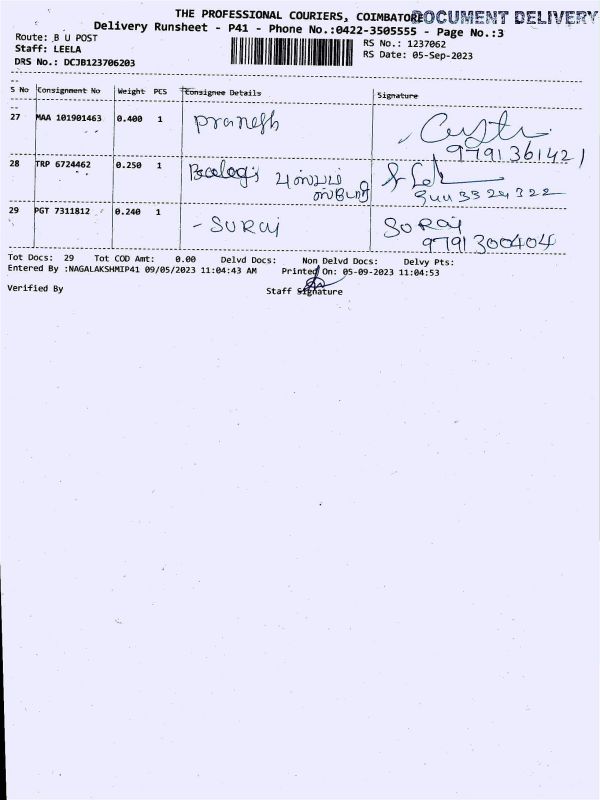 THE PROFESSIONAL COURIERS, COIMBATORE
DOCUMENT DELIVERY
Delivery Runsheet - P41 - Phone No.:0422-3505555 - Page No.:3
Route: B U POST
RS No.: 1237062
Staff: LEELA
RS Date: 05-Sep-2023
DRS No.: DCJB123706203
S No Consignment No Weight PCS Consignee Details Signature
27 MAA 101901463 0.400 1 Pranesh
9791361421
28 TRP 6724462 0.250 1
29 PGT 7311812 0.240 1 - SURaj SURaj
9791300404
Tot Docs: 29 Tot COD Amt: 0.00 Delvd Docs: Non Delvd Docs: Delvy Pts:
Entered By :NAGALAKSHMIP41 09/05/2023 11:04:43 AM Printed On: 05-09-2023 11:04:53
Verified By Staff Signature